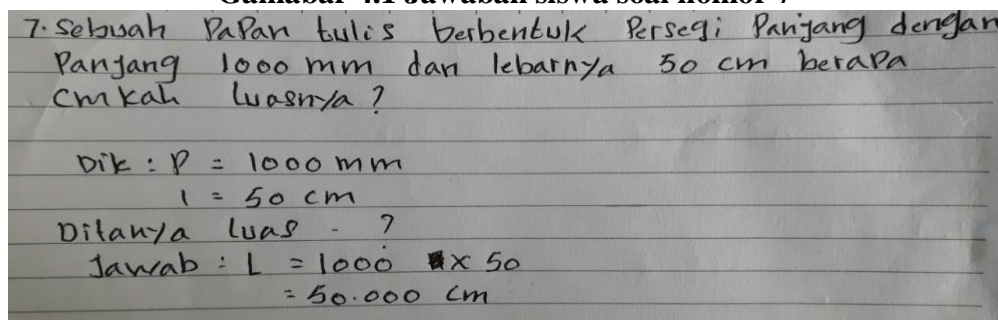 Gambar 4.1 Jawaban siswa soal nomor 7
7. Sebuah Papan tulis berbentuk Persegi Panjang dengan
Panjang 1000 mm dan lebarnya 50 cm berapa
cm kah luasnya ?
Dik : P = 1000 mm
l = 50 cm
Ditanya luas - ?
Jawab : L = 1000 x 50
= 50.000 cm